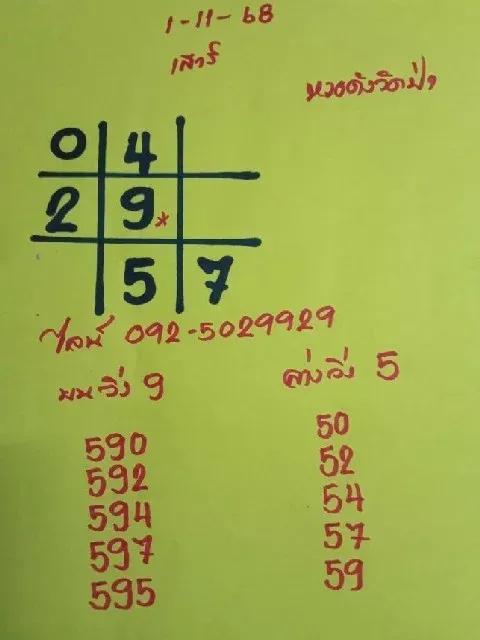 1-11-68
เสาร์
หวยดังวัดป่า
0 4
2 9*
5 7
ไลน์ 092-5029929
บนวิ่ง 9
ล่างวิ่ง 5
590
592
594
597
595
50
52
54
57
59